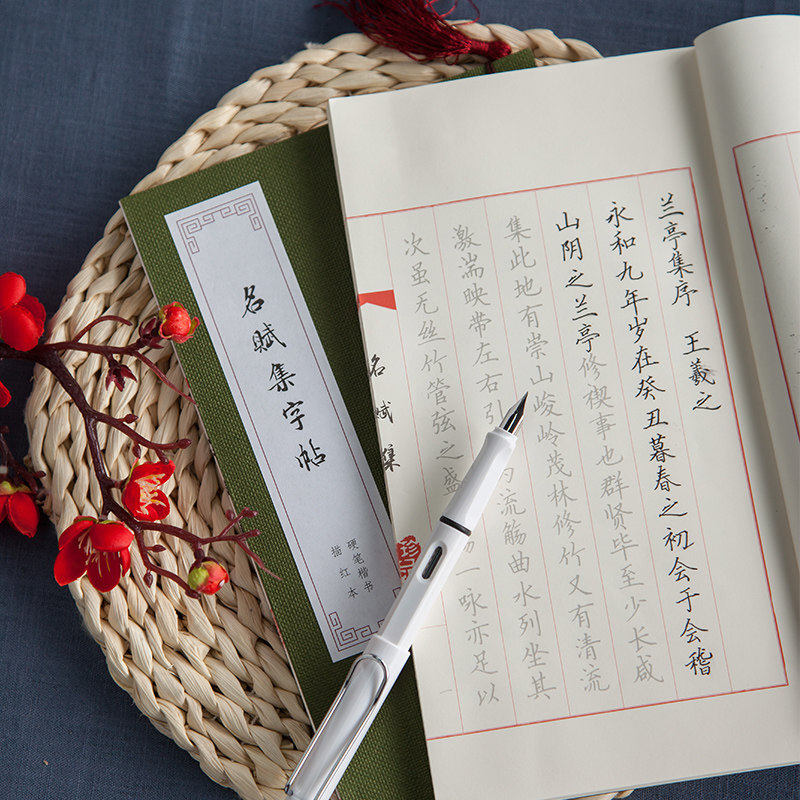 兰亭集序 王羲之
永和九年岁在癸丑暮春之初会于会稽
山阴之兰亭修禊事也群贤毕至少长咸
集此地有崇山峻岭茂林修竹又有清流
激湍映带左右引为流觞曲水列坐其
次虽无丝竹管弦之盛觞一咏亦足以
名赋集
名赋集字帖
硬笔楷书
描红本